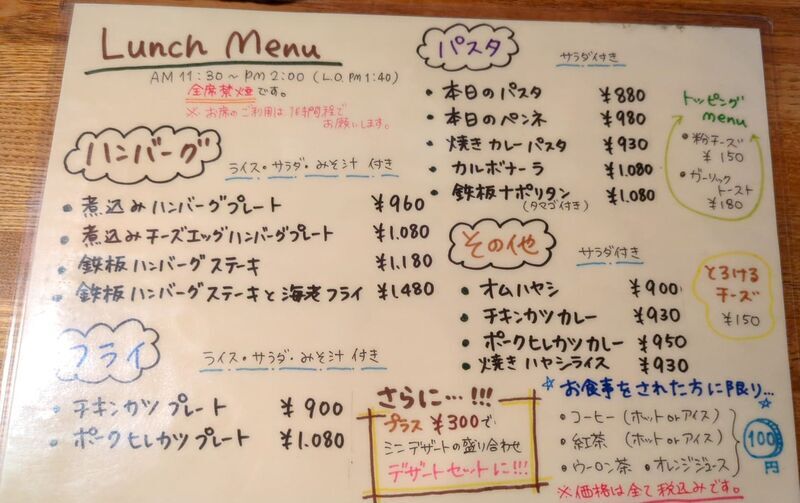 Lunch Menu
AM 11:30～PM 2:00 (L.O. PM 1:40)
全席禁煙です。
※お席のご利用は1時間程で
お願いします。
ハンバーグ ライス・サラダ・みそ汁 付き
・煮込みハンバーグプレート ¥960
・煮込みチーズエッグハンバーグプレート ¥1.080
・鉄板ハンバーグステーキ ¥1.180
・鉄板ハンバーグステーキと海老フライ ¥1.480
フライ ライス・サラダ・みそ汁 付き
・チキンカツプレート ¥900
・ポークヒレカツプレート ¥1.080
パスタ サラダ付き
・本日のパスタ ¥880
・本日のペンネ ¥980
・焼きカレーパスタ ¥930
・カルボナーラ ¥1.080
・鉄板ナポリタン ¥1.080
(タマゴ付き)
トッピング
menu
・粉チーズ
¥150
・ガーリック
トースト
¥180
その他 サラダ付き
・オムハヤシ ¥900
・チキンカツカレー ¥930
・ポークヒレカツカレー ¥950
・焼きハヤシライス ¥930
とろける
チーズ
¥150
さらに…!!!
プラス ¥300で
ミニデザートの盛り合わせ
デザートセットに!!!
☆お食事をされた方に限り…
・コーヒー (ホット or アイス)
・紅茶 (ホット or アイス)
・ウーロン茶 ・オレンジジュース
100円
※価格は全て税込みです。